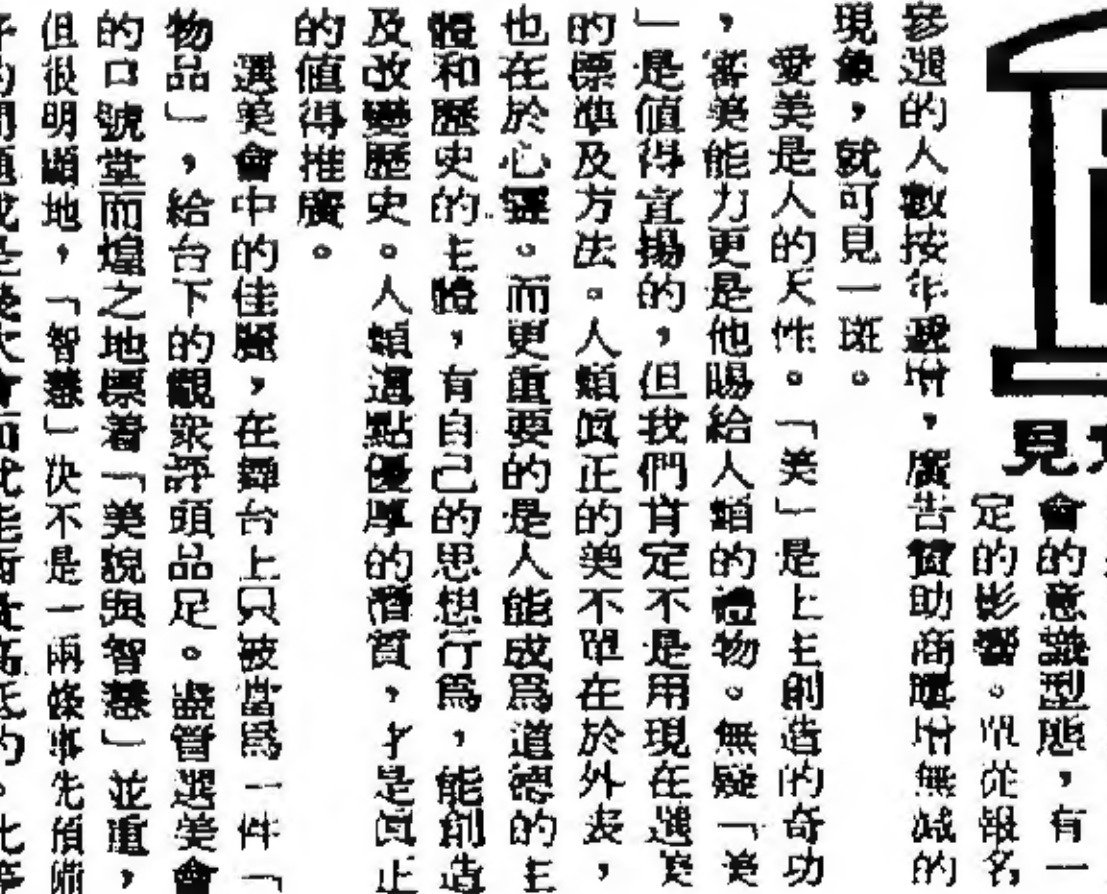 見
會的意識型態，有一
定的影響。單從報名
參選的人數按年遞增，廣告贊助商嘅增無減的
現象，就可見一斑。
愛美是人的天性。「美」是上主創造的奇功
，審美能力更是他賜給人類的禮物。無疑「美
」是值得宣揚的，但我們肯定不是用現在選美
的標準及方法。人類眞正的美不單在於外表，
也在於心靈。而更重要的是人能成爲道德的主
體和歷史的主體，有自己的思想行爲，能創造
及改變歷史。人類這點優厚的潛質，才是眞正
的值得推廣。
選美會中的佳麗，在舞台上只被當爲一件「
物品」，給台下的觀衆評頭品足。盡管選美會
的口號堂而煌之地標着「美貌與智慧」並重，
但很明顯地，「智慧」決不是一兩條事先預備